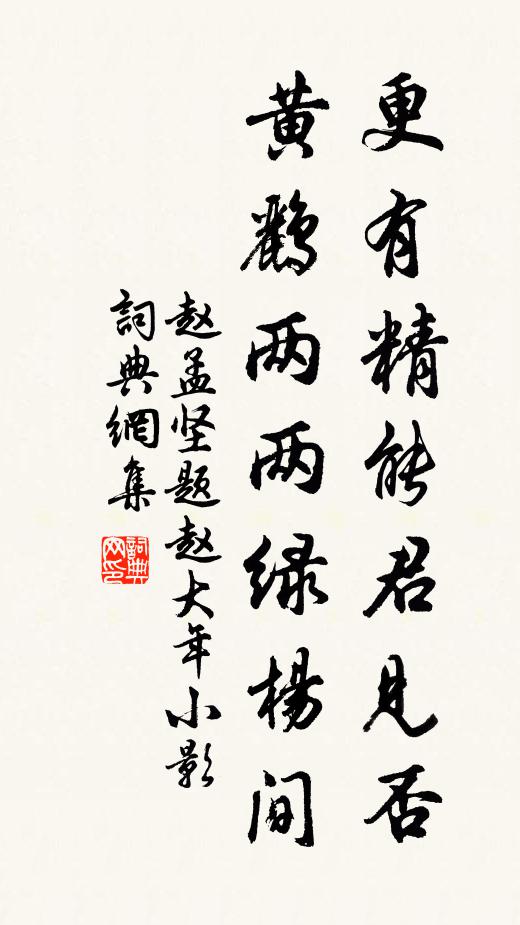 更有精能君见否
黄鹂两两绿楊间
赵孟坚题赵大年小影
詞典網集
詞典网印